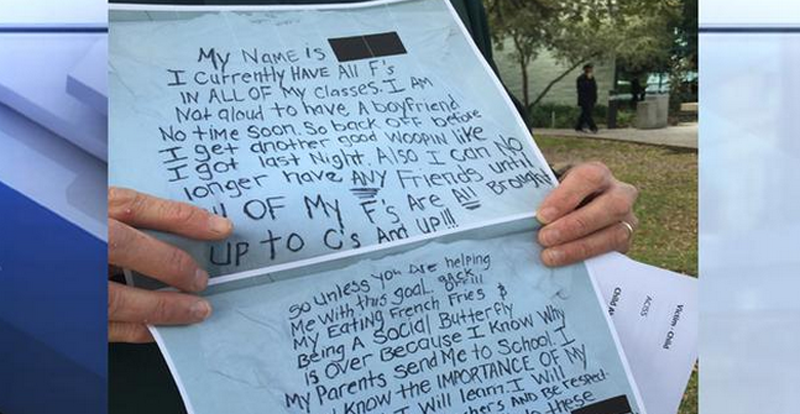 My NAME is
I currently HAVE All F's
IN ALL OF My Classes. I AM
Not aloud to have A boyfriend
No time soon. So back OFF before
I get another good WOOPIN like
I got last Night. Also I can NO
longer have ANY Friends until
OF My F's Are All Brought
UP to C's And up!!!
so unless you are helping
Me with this goal. BACK OFF!!!
My Eating French Fries &
Being A Social Butterfly
is Over Because I Know Why
My Parents send Me to School. I
know the IMPORTANCE OF My
I Will learn. I Will
AND Be respect-
these
Victim - Child
ACISS
Child